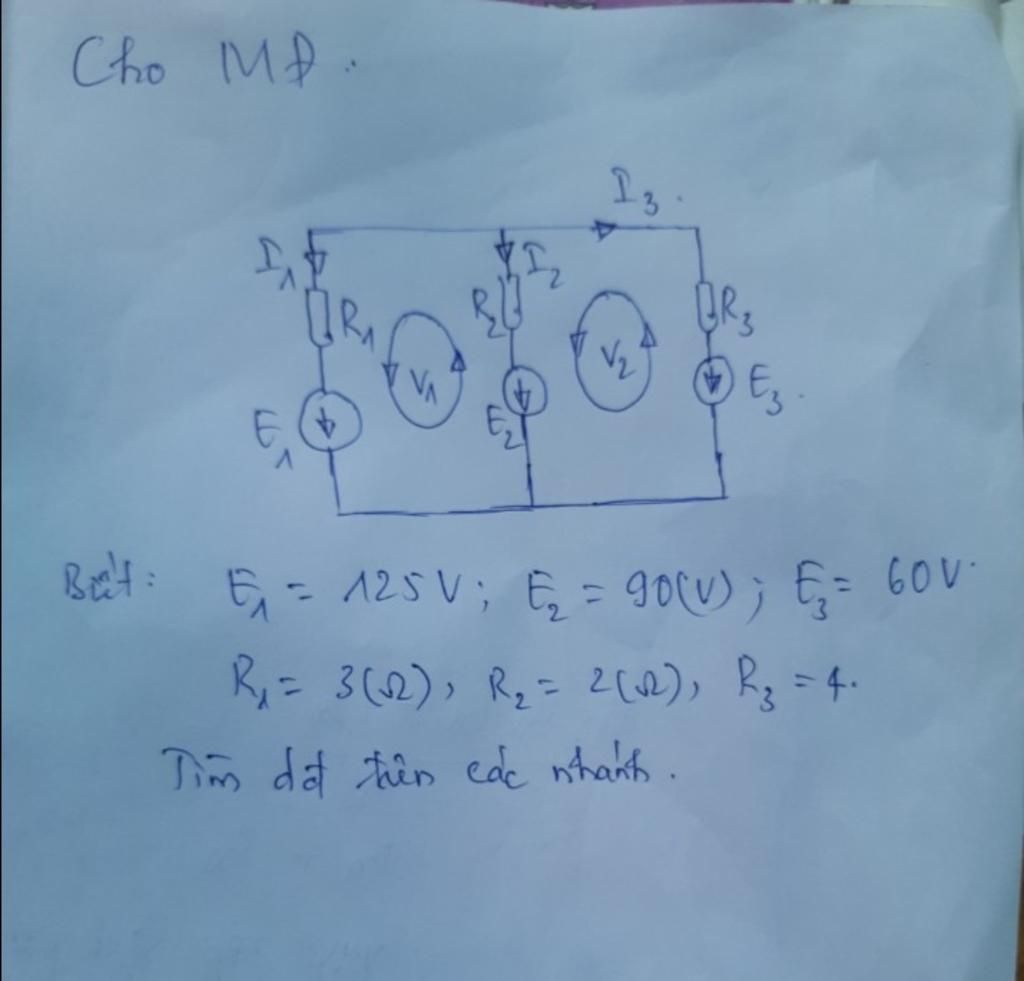 Cho MĐ.
I3.
I1
I2
R1
R2
R3
V1
V2
E1
E2
E3.
Biết: E1 = 125V; E2 = 90(V); E3 = 60V.
R1 = 3(Ω), R2 = 2(Ω), R3 = 4.
Tìm dđ trên các nhánh.